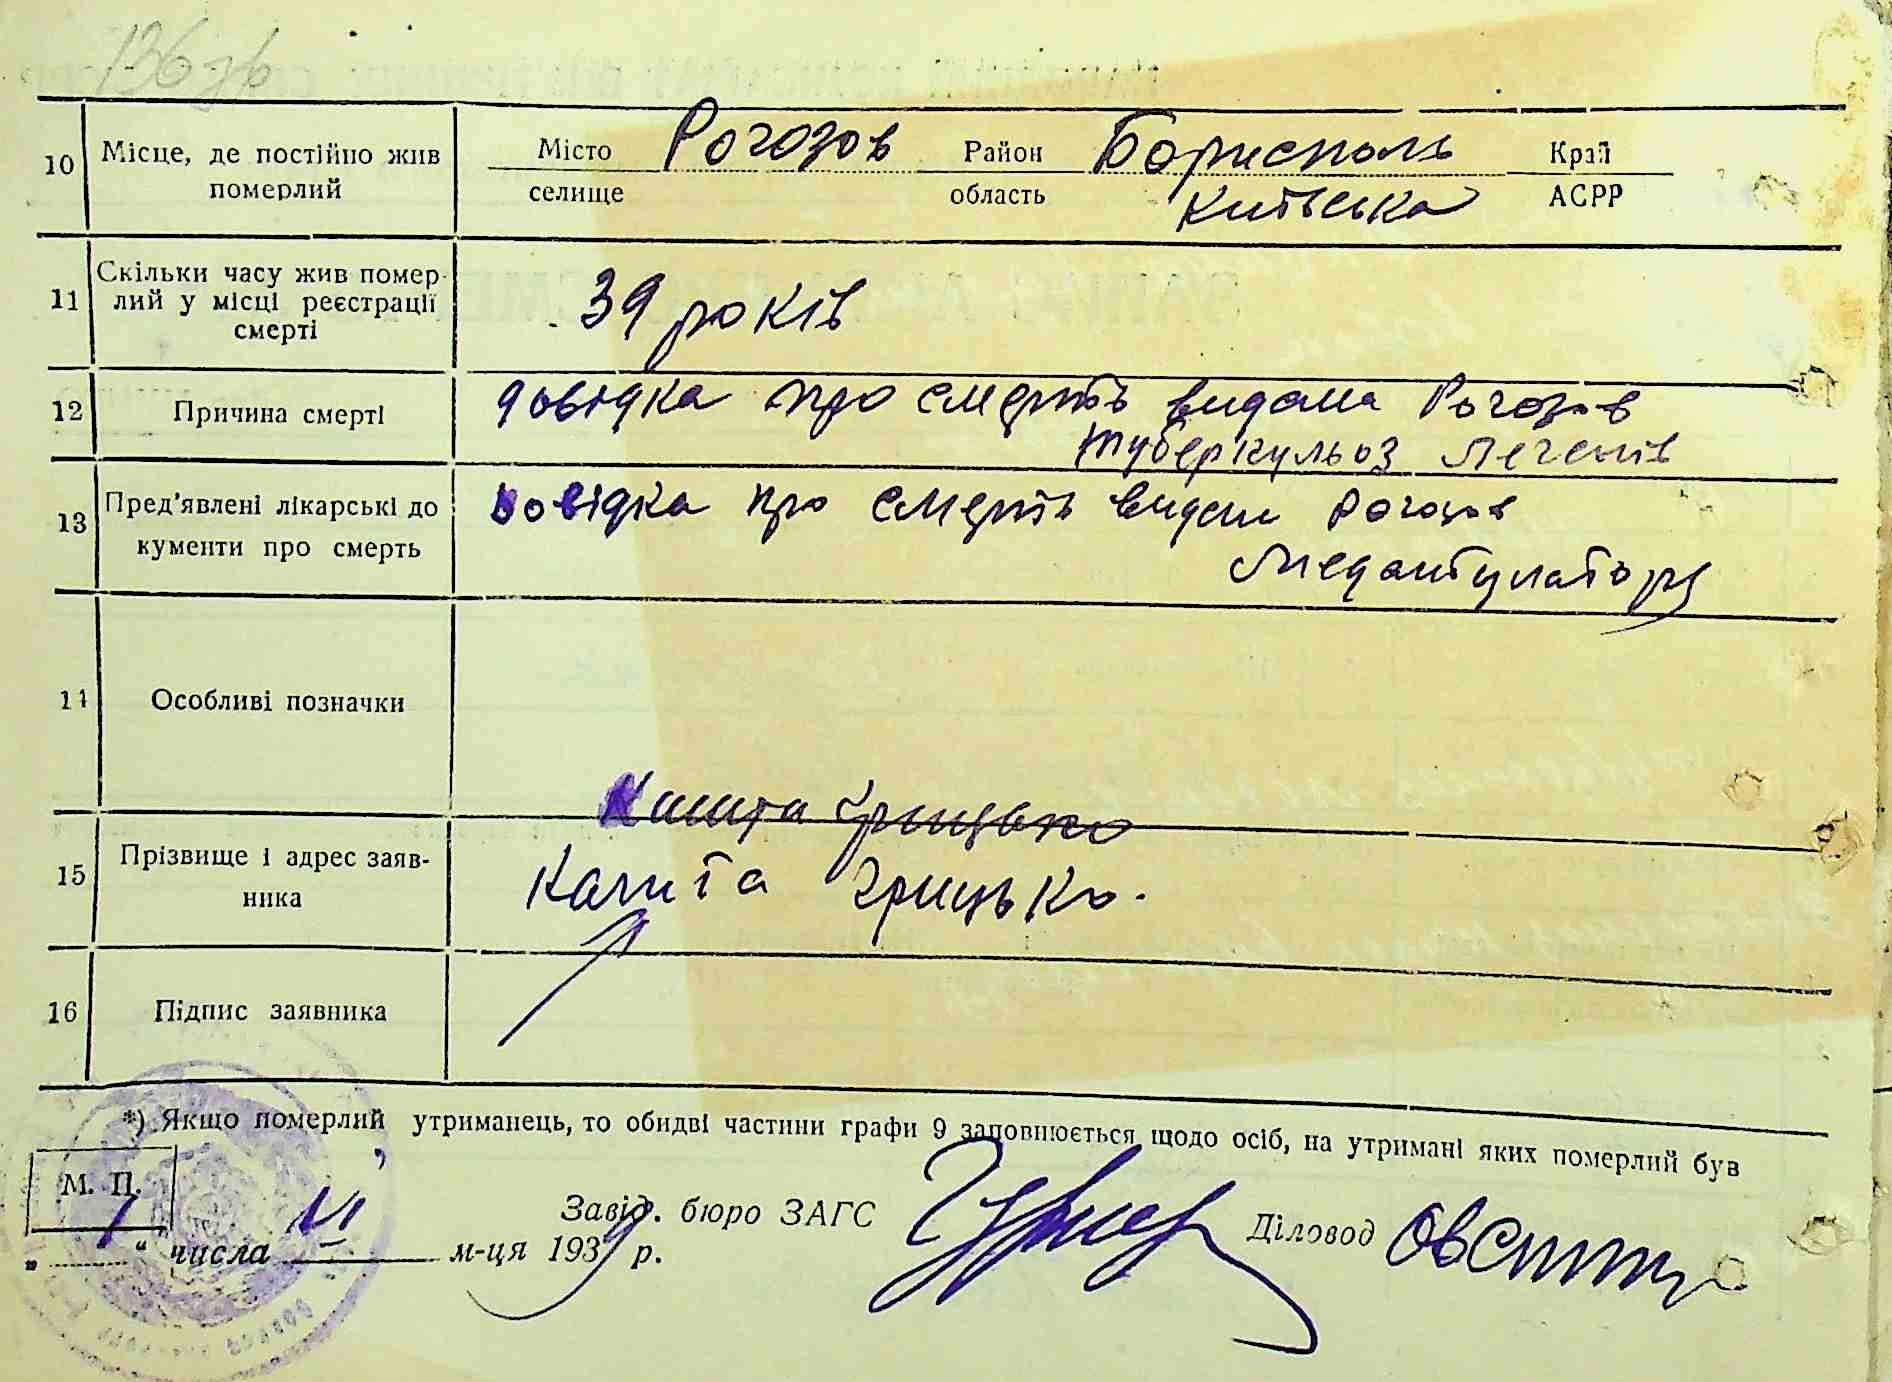 136 зв
10
Місце, де постійно жив
померлий
Місто Рогозов Район Борисполь Край
селище область Київська АСРР
11
Скільки часу жив помер-
лий у місці реєстрації
смерті
39 років
12
Причина смерті
довідка про смерть видана Рогозов
туберкульоз легенів
13
Пред'явлені лікарські до
кументи про смерть
довідка про смерть видан Рогозов
14
Особливі позначки
Калита Грицько
15
Прізвище і адрес заяв-
ника
Калита Грицько.
16
Підпис заявника
*) Якщо померлий утриманець, то обидві частини графи 9 заповнюється щодо осіб, на утримані яких померлий був
М. П.
Завід. бюро ЗАГС
Діловод
„ 1 “ числа VI м-ця 1939 р.